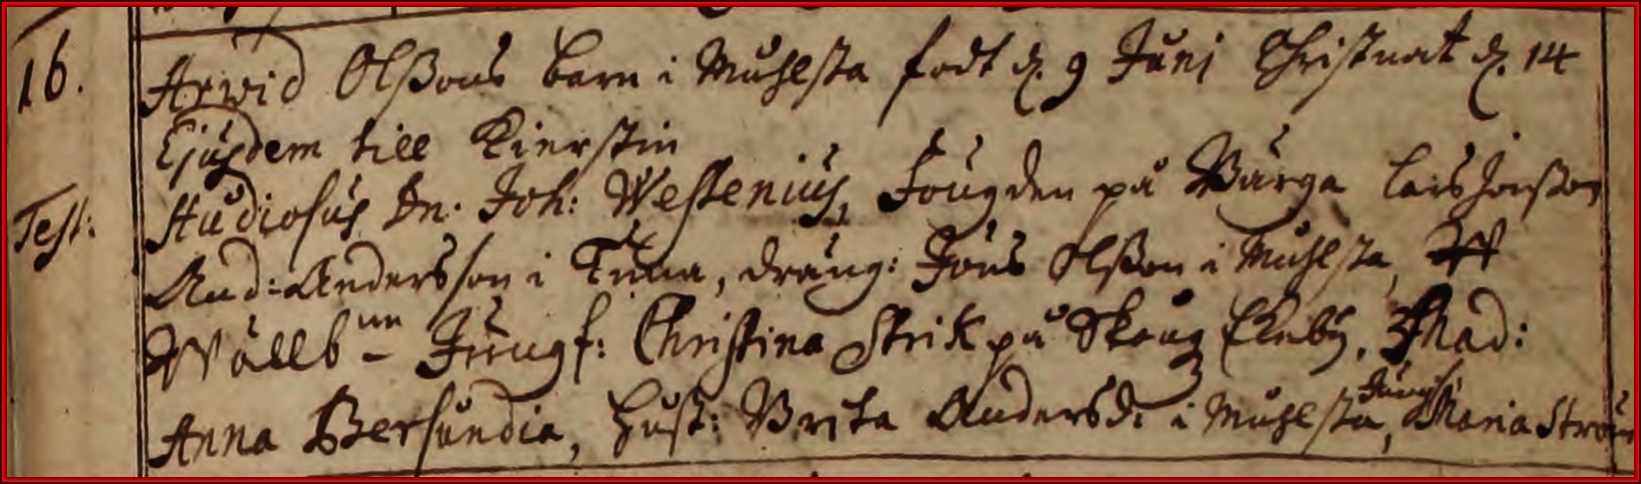 16. Arvid Olßons barn i Muhlsta födt d. 9 Junj Christnat d. 14
Ejusdem till Kierstin
Test: Studiosus Dn. Joh: Westenius, Fougden på Wårga Lars Jonßon
And: Andersson i Tuna, dräng: Jöns Olßon i Muhlsta,
Wällb.ne Jungf: Christina Strik på Skoug Ekeby, Mad:
Anna Bersundia, Hust: Brita Anders d. i Muhlsta, Jungf: Maria Ström